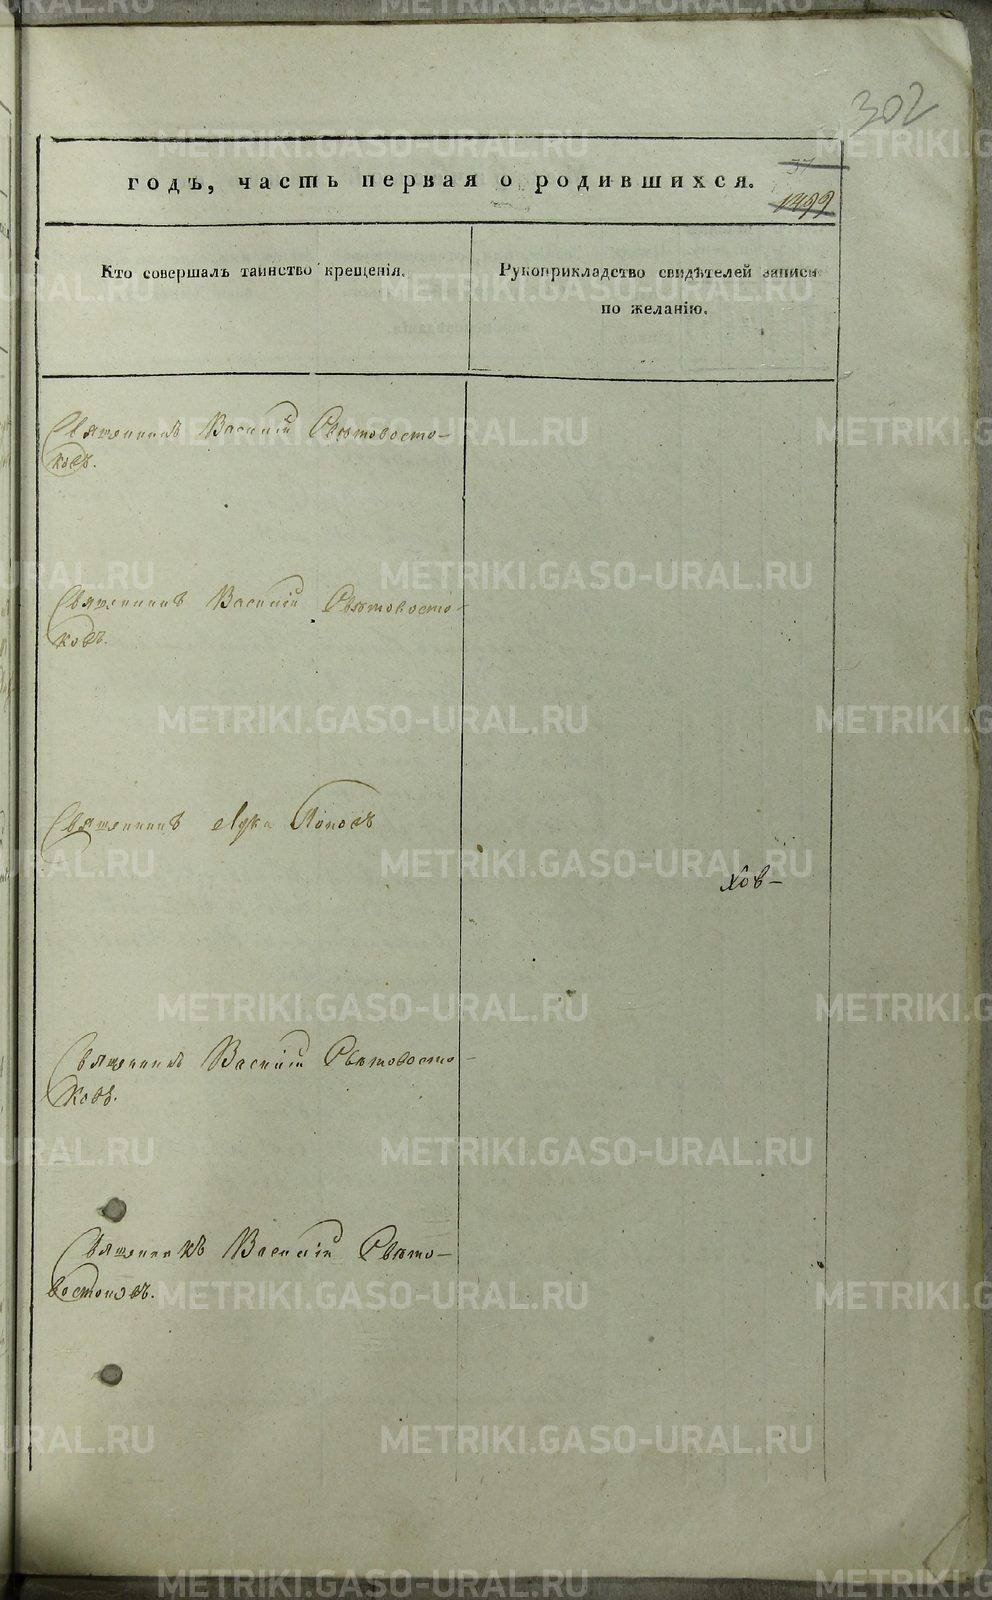 302
37
годъ, часть первая о родившихся.
1499
Кто совершалъ таинство крещенія.
Рукоприкладство свидѣтелей записи
по желанію.
Священникъ Василій Свѣтовосто-
ковъ.
Священникъ Василій Свѣтовосто-
ковъ.
Священникъ Лука Поповъ
Хов-
Священникъ Василій Свѣтовосто-
ковъ.
Священникъ Василій Свѣто-
востоковъ.
METRIKI.GASO-URAL.RU